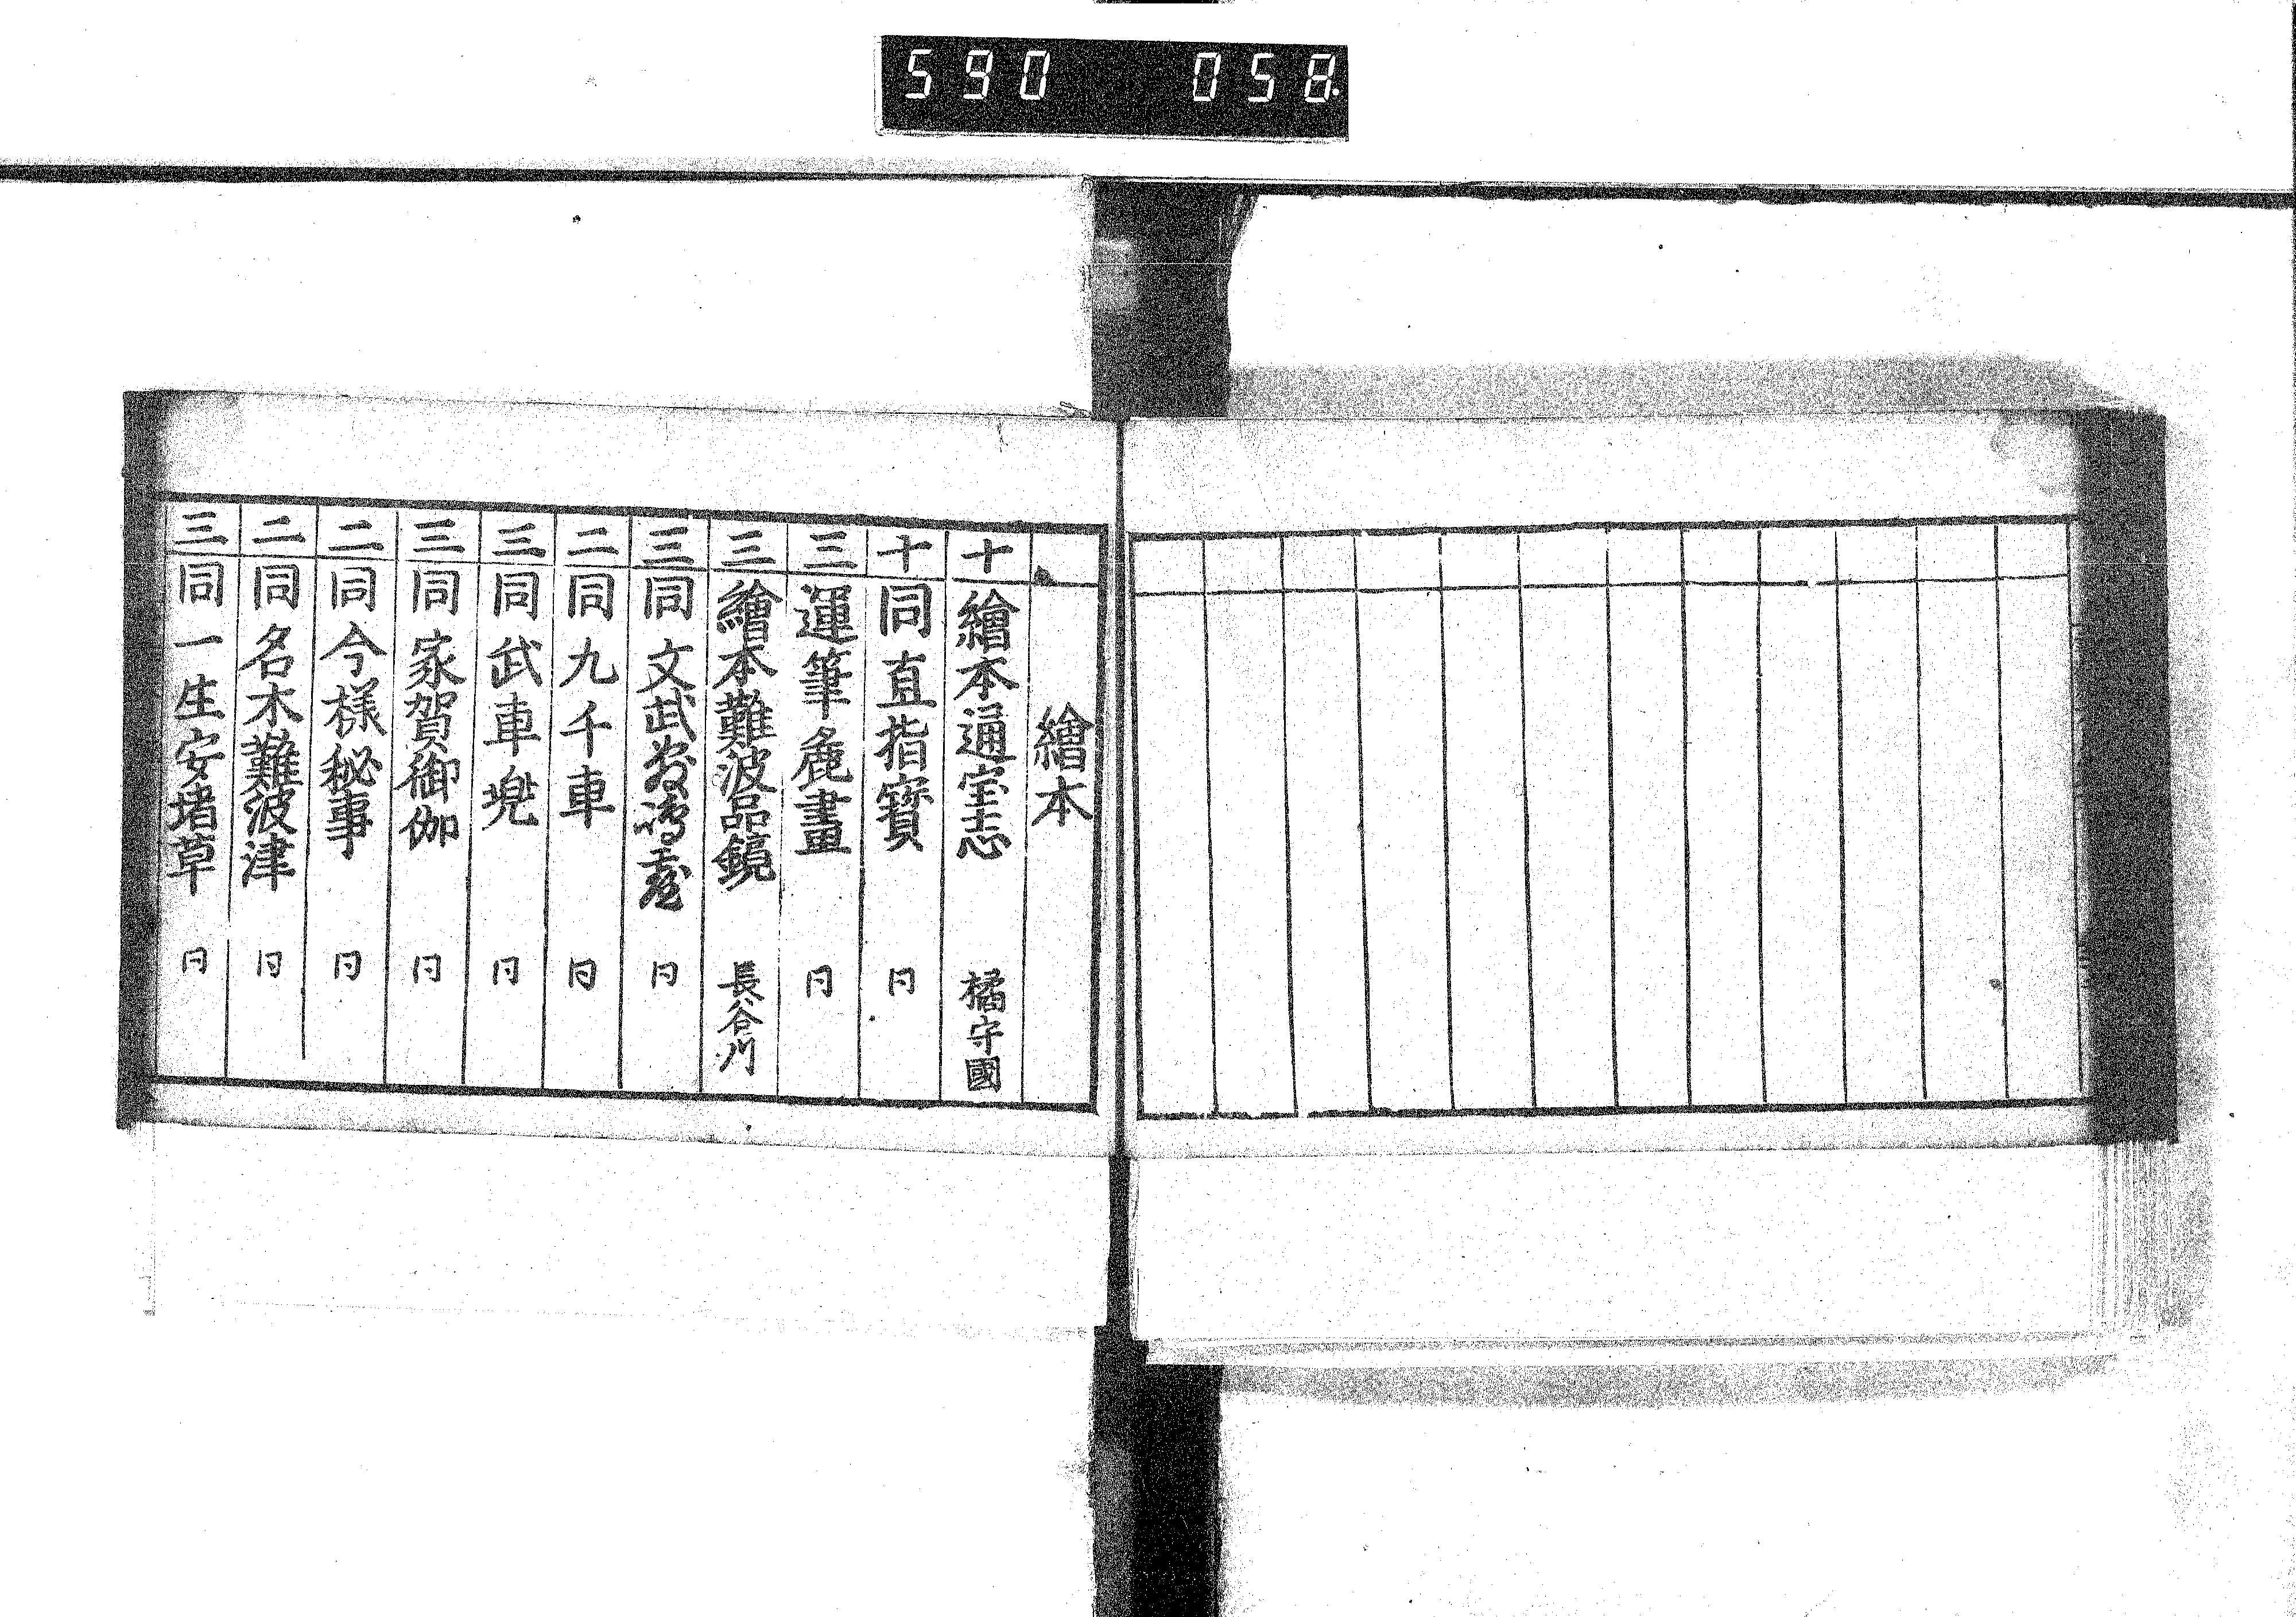 590 058.
繪本
十 繪本通宝志 橘守國
十 同直指寳 同
三 運筆麁畫 同
三 繪本難波品鏡 長谷川
三 同文武 同
二 同九千車 同
三 同武車兠 同
三 同家賀御伽 同
二 同今様秘事 同
二 同名木難波津 同
三 同一生安堵草 同